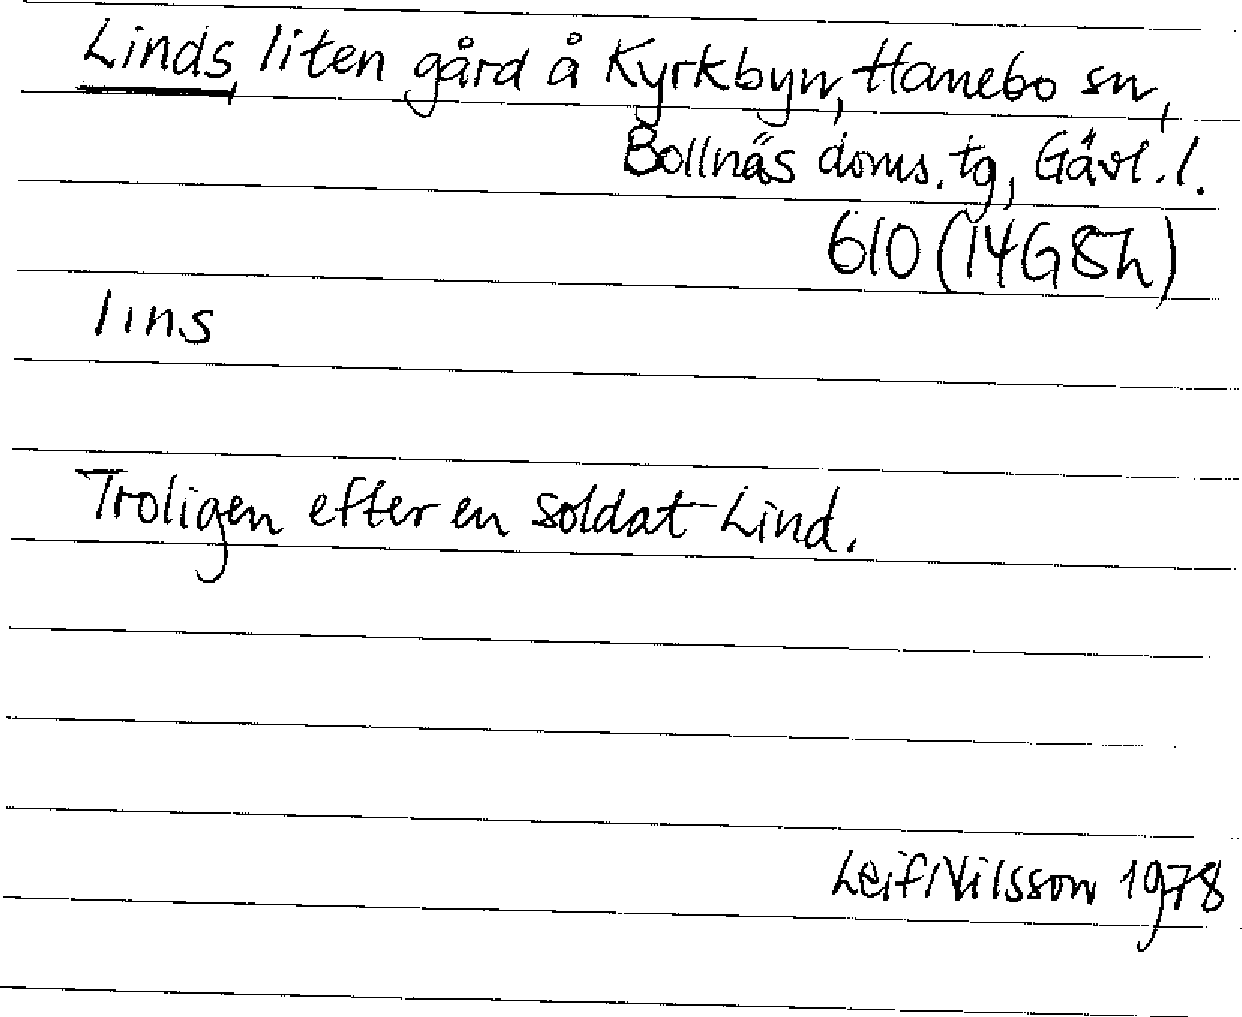 Linds, liten gård å Kyrkbyn, Hanebo sn,
Bollnäs doms. tg, Gävl. l.
610 (14G8h)
lins
Troligen efter en soldat Lind.
Leif Nilsson 1978